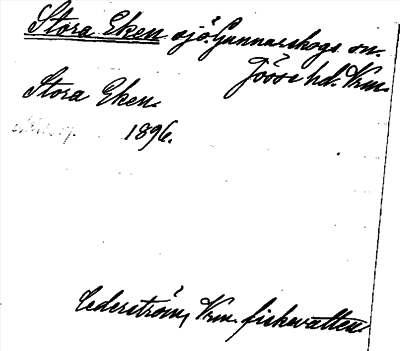 Stora Eken sjö. Gunnarskogs sn.
Jösse hd. Vrm.
Stora Eken.
1896.
Cederström, Vrm. fiskevatten.